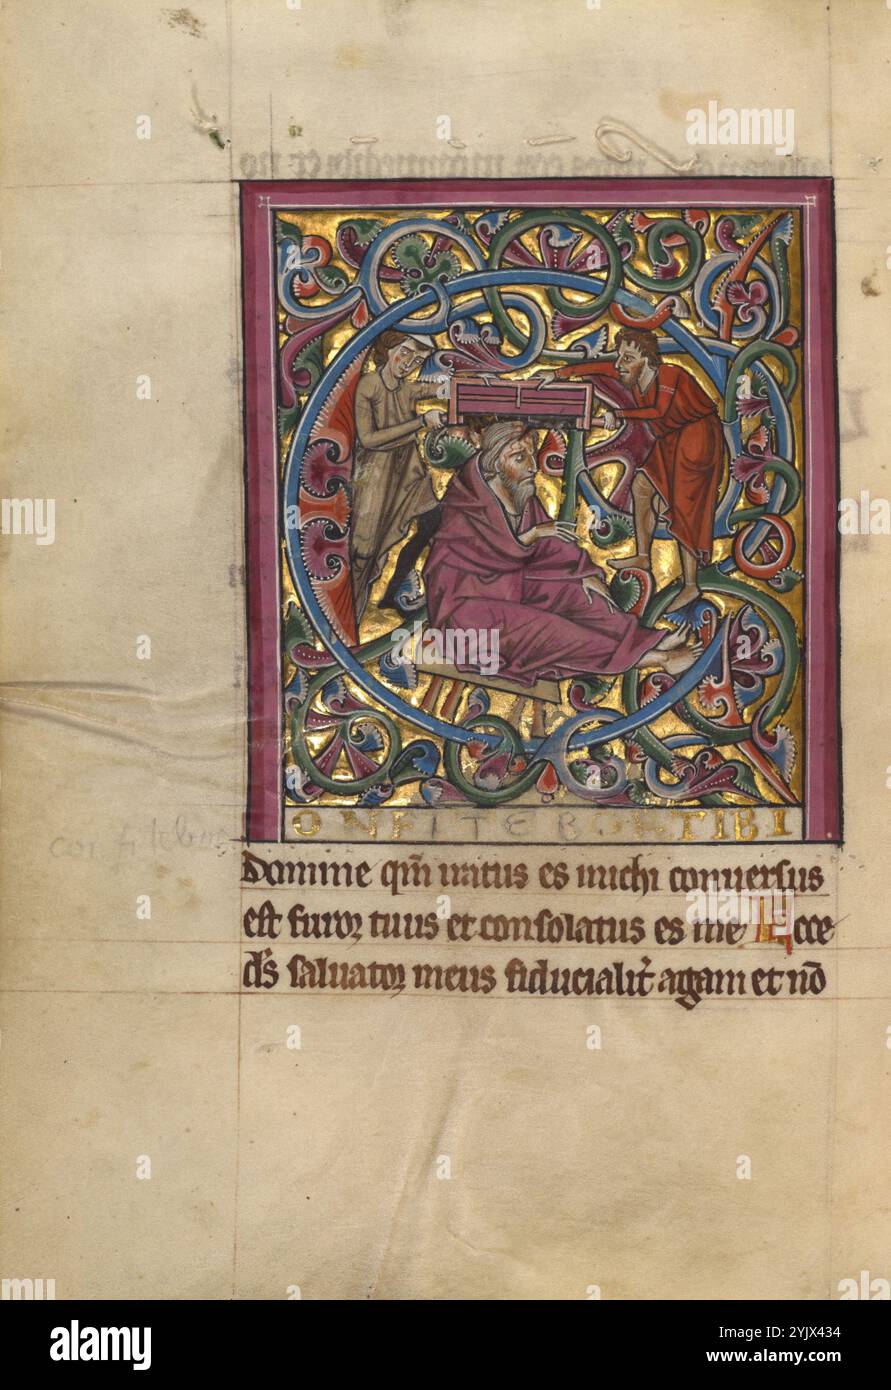 ONFITEBORTIBI
Domine qm̄ iratus es michi conuersus
est furor tuus et consolatus es me Ecce
ds̄ saluator meus fiducialit̄ agam et nō
alamy
Image ID: 2YJX434
www.alamy.com